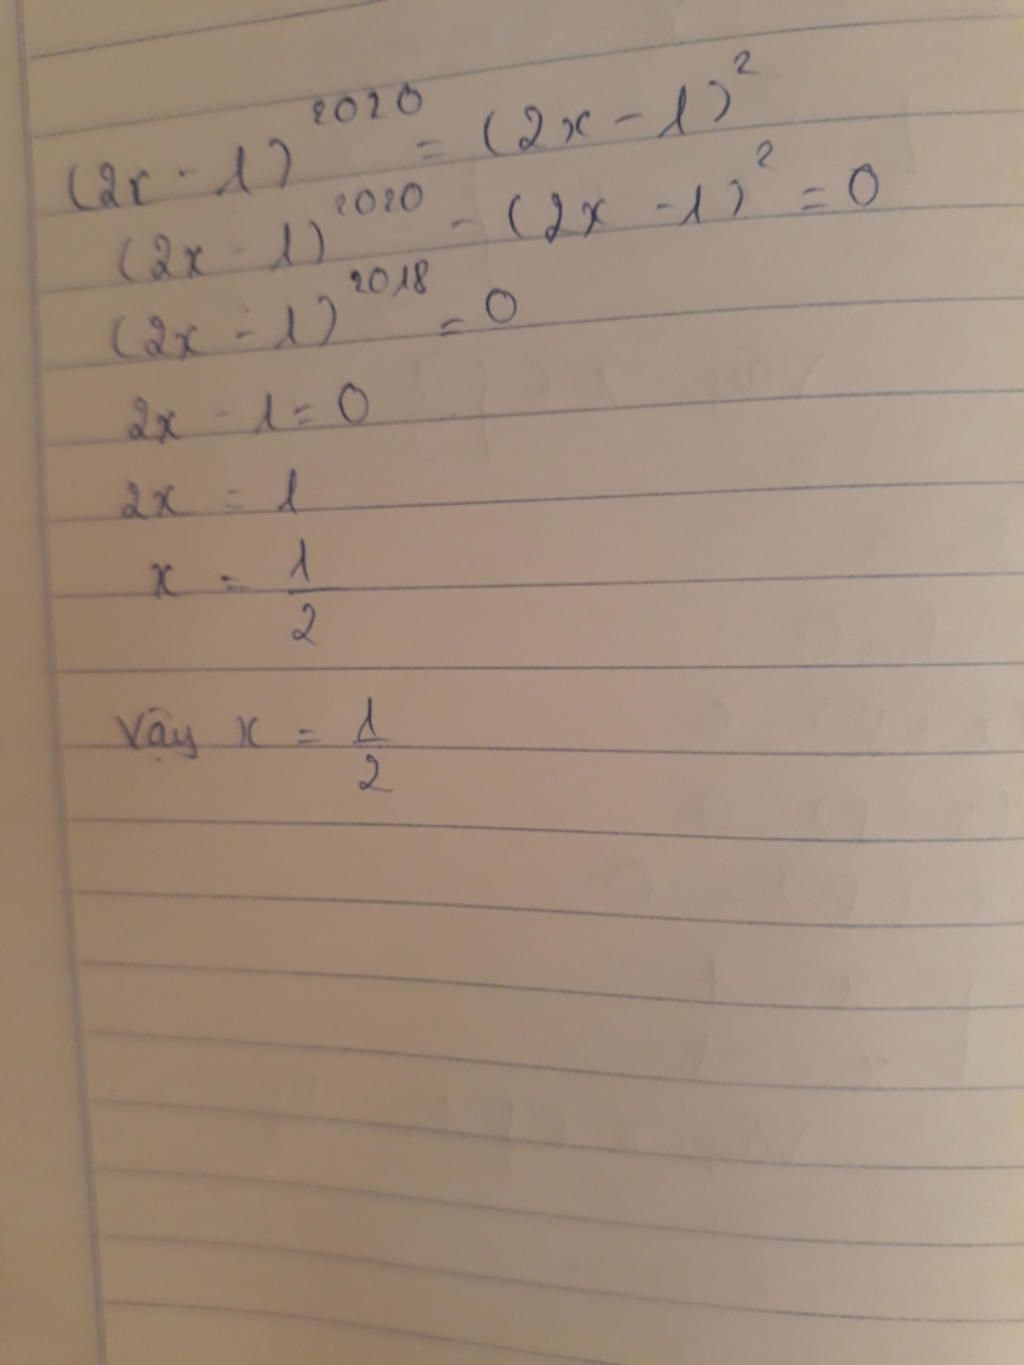 (2x - 1)²⁰²⁰ = (2x - 1)²
(2x - 1)²⁰²⁰ - (2x - 1)² = 0
(2x - 1)²⁰¹⁸ = 0
2x - 1 = 0
2x = 1
x = 1/2
Vậy x = 1/2